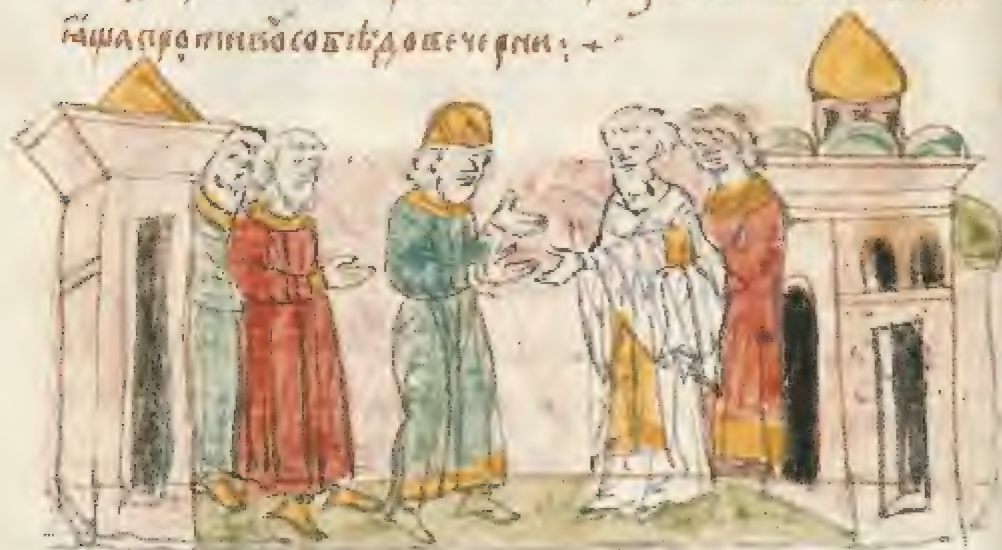 ꙗша противꙋ собѣ до вечерни : +